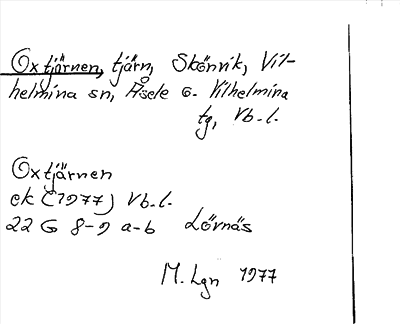 Oxtjärnen, tjärn, Skönvik, Vil-
helmina sn, Åsele o. Vilhelmina
tg, Vb. l.
Oxtjärnen
ek (1977) Vb. l.
22 G 8-9 a-b Lövnäs
M. Lgn 1977